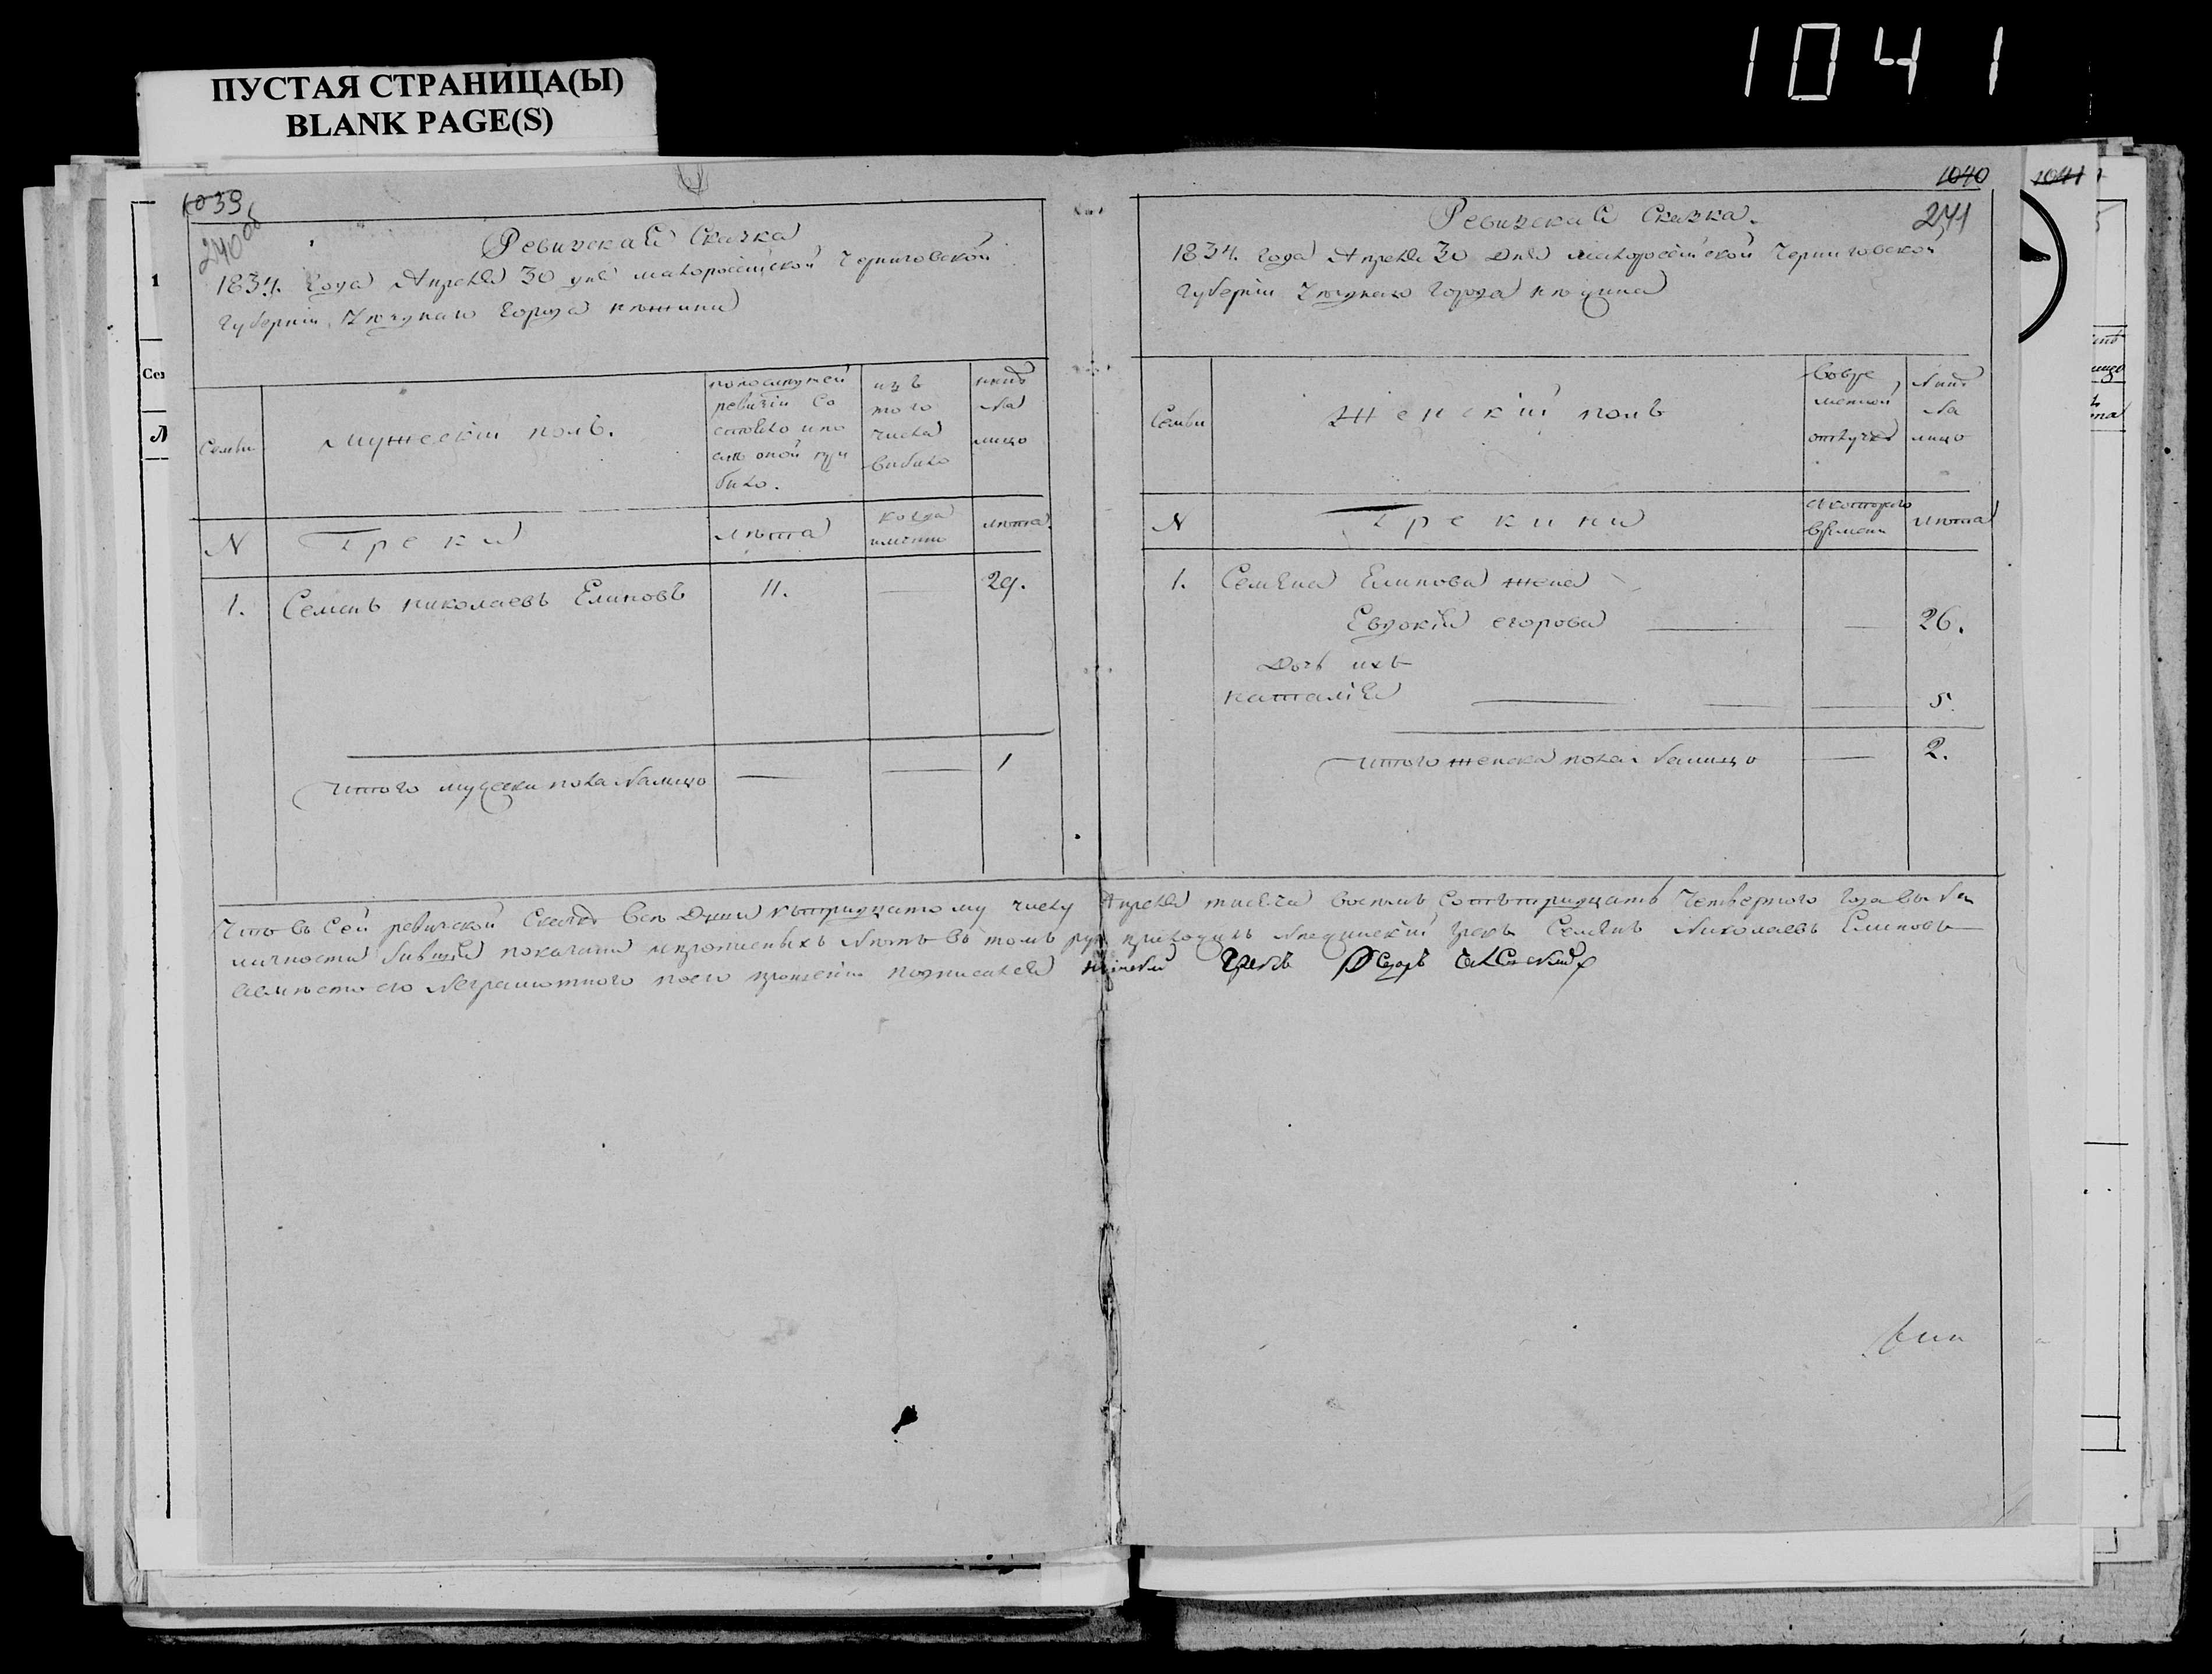 1041
ПУСТАЯ СТРАНИЦА(Ы)
BLANK PAGE(S)
1039
240об
Ревизская Сказка
1834. Года Апреля 30 дня малороссійской Черниговской
Губерніи, уѣзднаго города нѣжина
Семьи
Мужескій полъ.
по последней
ревизіи Со
стояло и по
слѣ оной при
было.
изъ
того
числа
выбыло
нынѣ
на
лицо
N
Греки
лѣта
когда
имянно
лѣта
1. Семенъ николаевъ Елиновъ 11. — 29.
Итого мужеска пола налицо — — 1
1040
1041
241
Ревизская Сказка.
1834. Года Апреля 30 Дня малороссійской Черниговской
Губерніи уѣзднаго города нѣжина
Семьи
Женскій полъ
Вовре
менной
отлучкѣ
Нынѣ
на
лицо
N
Грекини
съ котораго
времени
лѣта
1. Семена Елинова жена
Евдокія егорова — — 26.
Дочь ихъ
наталія — — 5.
Итого женска пола налицо — 2.
Что въ Сей ревизской Сказкѣ всѣ Души къ тридцатому числу Апреля тысяча восемь Сотъ тридцать Четвертого года въ на
личности бывшія показаны и прописныхъ нѣтъ въ томъ руку приложилъ нѣжинскій грекъ Семенъ Николаевъ Елиновъ
а вместо его неграмотного по его прошенію подписался нѣжинскій Грекъ Федоръ